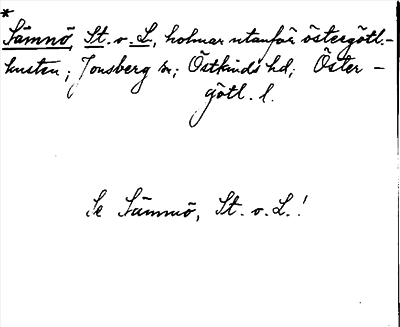 *
Sämnö, St. o. L., holmar utanför östergötl.-
kusten; Jonsberg sn; Östkinds hd; Öster-
götl. l.
Se Sämmö, St. o. L.!